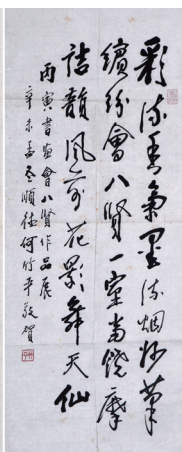 彩流香氣墨流烟妙筆
繽紛會八賢一室當饒摩
詰韻風前花影舞天仙
丙寅書畫會八賢作品展
辛未孟冬順德何竹平敬賀